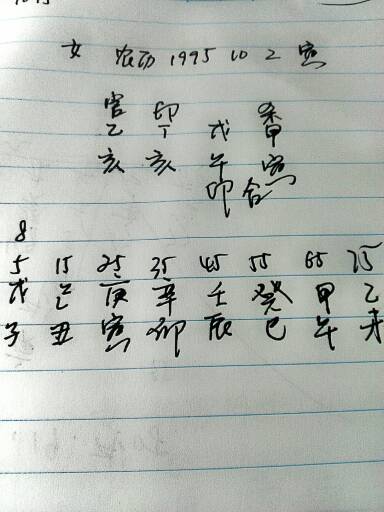 女 农历 1995 10 2 寅
官 印 杀
乙 丁 戊 甲
亥 亥 午 寅
印 合
8
5 15 25 35 45 55 65 75
戊 己 庚 辛 壬 癸 甲 乙
子 丑 寅 卯 辰 巳 午 未